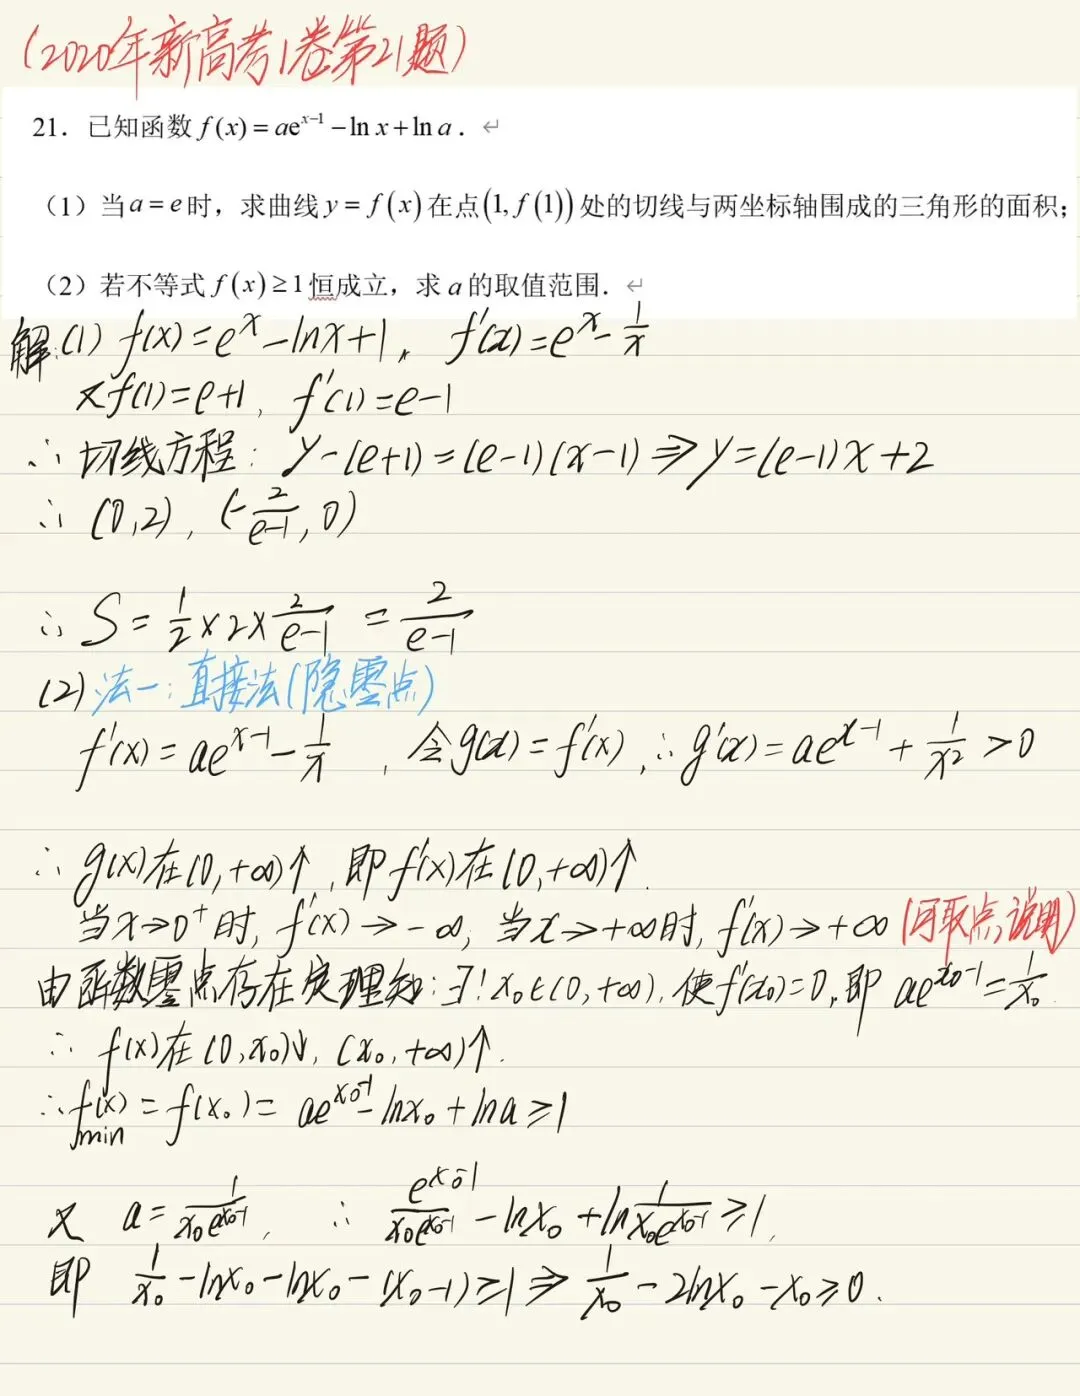 (2020年新高考1卷第21题)
21. 已知函数 f(x)=ae^{x-1}-ln x+ln a. ↵
（1）当 a=e 时，求曲线 y=f(x) 在点(1,f(1))处的切线与两坐标轴围成的三角形的面积；
（2）若不等式 f(x)≥1 恒成立，求 a 的取值范围. ↵
解:(1) f(x)=e^x-lnx+1, f'(x)=e^x-1/x
又f(1)=e+1, f'(1)=e-1
∴切线方程: y-(e+1)=(e-1)(x-1)⇒y=(e-1)x+2
∴ (0,2), (-2/(e-1),0)
∴ S=1/2×2×2/(e-1)=2/(e-1)
(2)法一:直接法(隐零点)
f'(x)=ae^{x-1}-1/x, 令g(x)=f'(x),∴g'(x)=ae^{x-1}+1/x²>0
∴g(x)在(0,+∞)↑,即f'(x)在(0,+∞)↑.
当x→0⁺时,f'(x)→-∞,当x→+∞时,f'(x)→+∞(可取点说明)
由函数零点存在定理知:∃!x₀∈(0,+∞),使f'(x₀)=0,即 ae^{x₀-1}=1/x₀.
∴ f(x)在(0,x₀)↓,(x₀,+∞)↑.
∴f(x)min=f(x₀)=ae^{x₀-1}-lnx₀+lna≥1
又 a=1/(x₀e^{x₀-1}), ∴ e^{x₀-1}/(x₀e^{x₀-1})-lnx₀+ln1/(x₀e^{x₀-1})≥1,
即 1/x₀-lnx₀-lnx₀-(x₀-1)≥1⇒1/x₀-2lnx₀-x₀≥0.